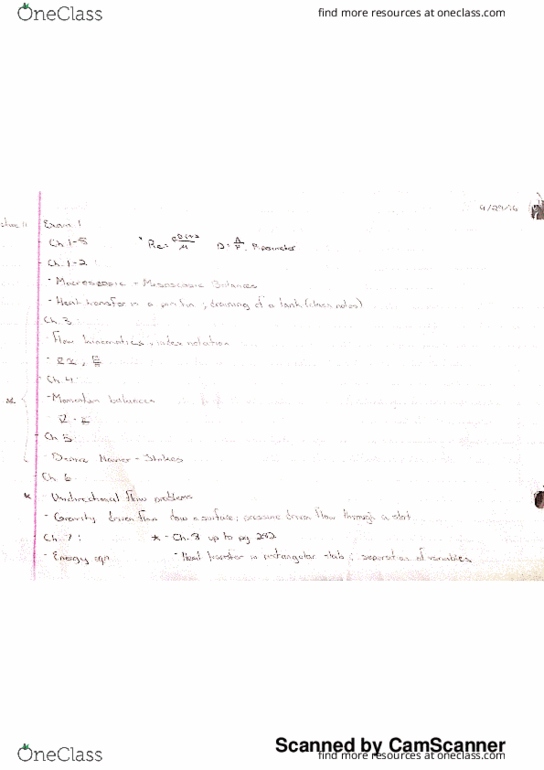 OneClass find more resources at oneclass.com
Exam 1
Ch. 1-5 Re= μ
Ch. 1-2:
- Macroscopic - Balances
- Heat transfer in a ; draining of a tank (class notes)
Ch. 3:
Flow kinematics, index notation
Ch. 4
- Momentum balances
Ch 5
- Navier - Stokes
Ch. 6
* - Unidirectional flow problems
- Gravity driven flow down a surface; pressure driven flow through a slot
Ch. 7: * - Ch. 8 up to pg 242
- Energy eqn - Heat transfer in rectangular slab; separation of variables
Scanned by CamScanner
OneClass find more resources at oneclass.com